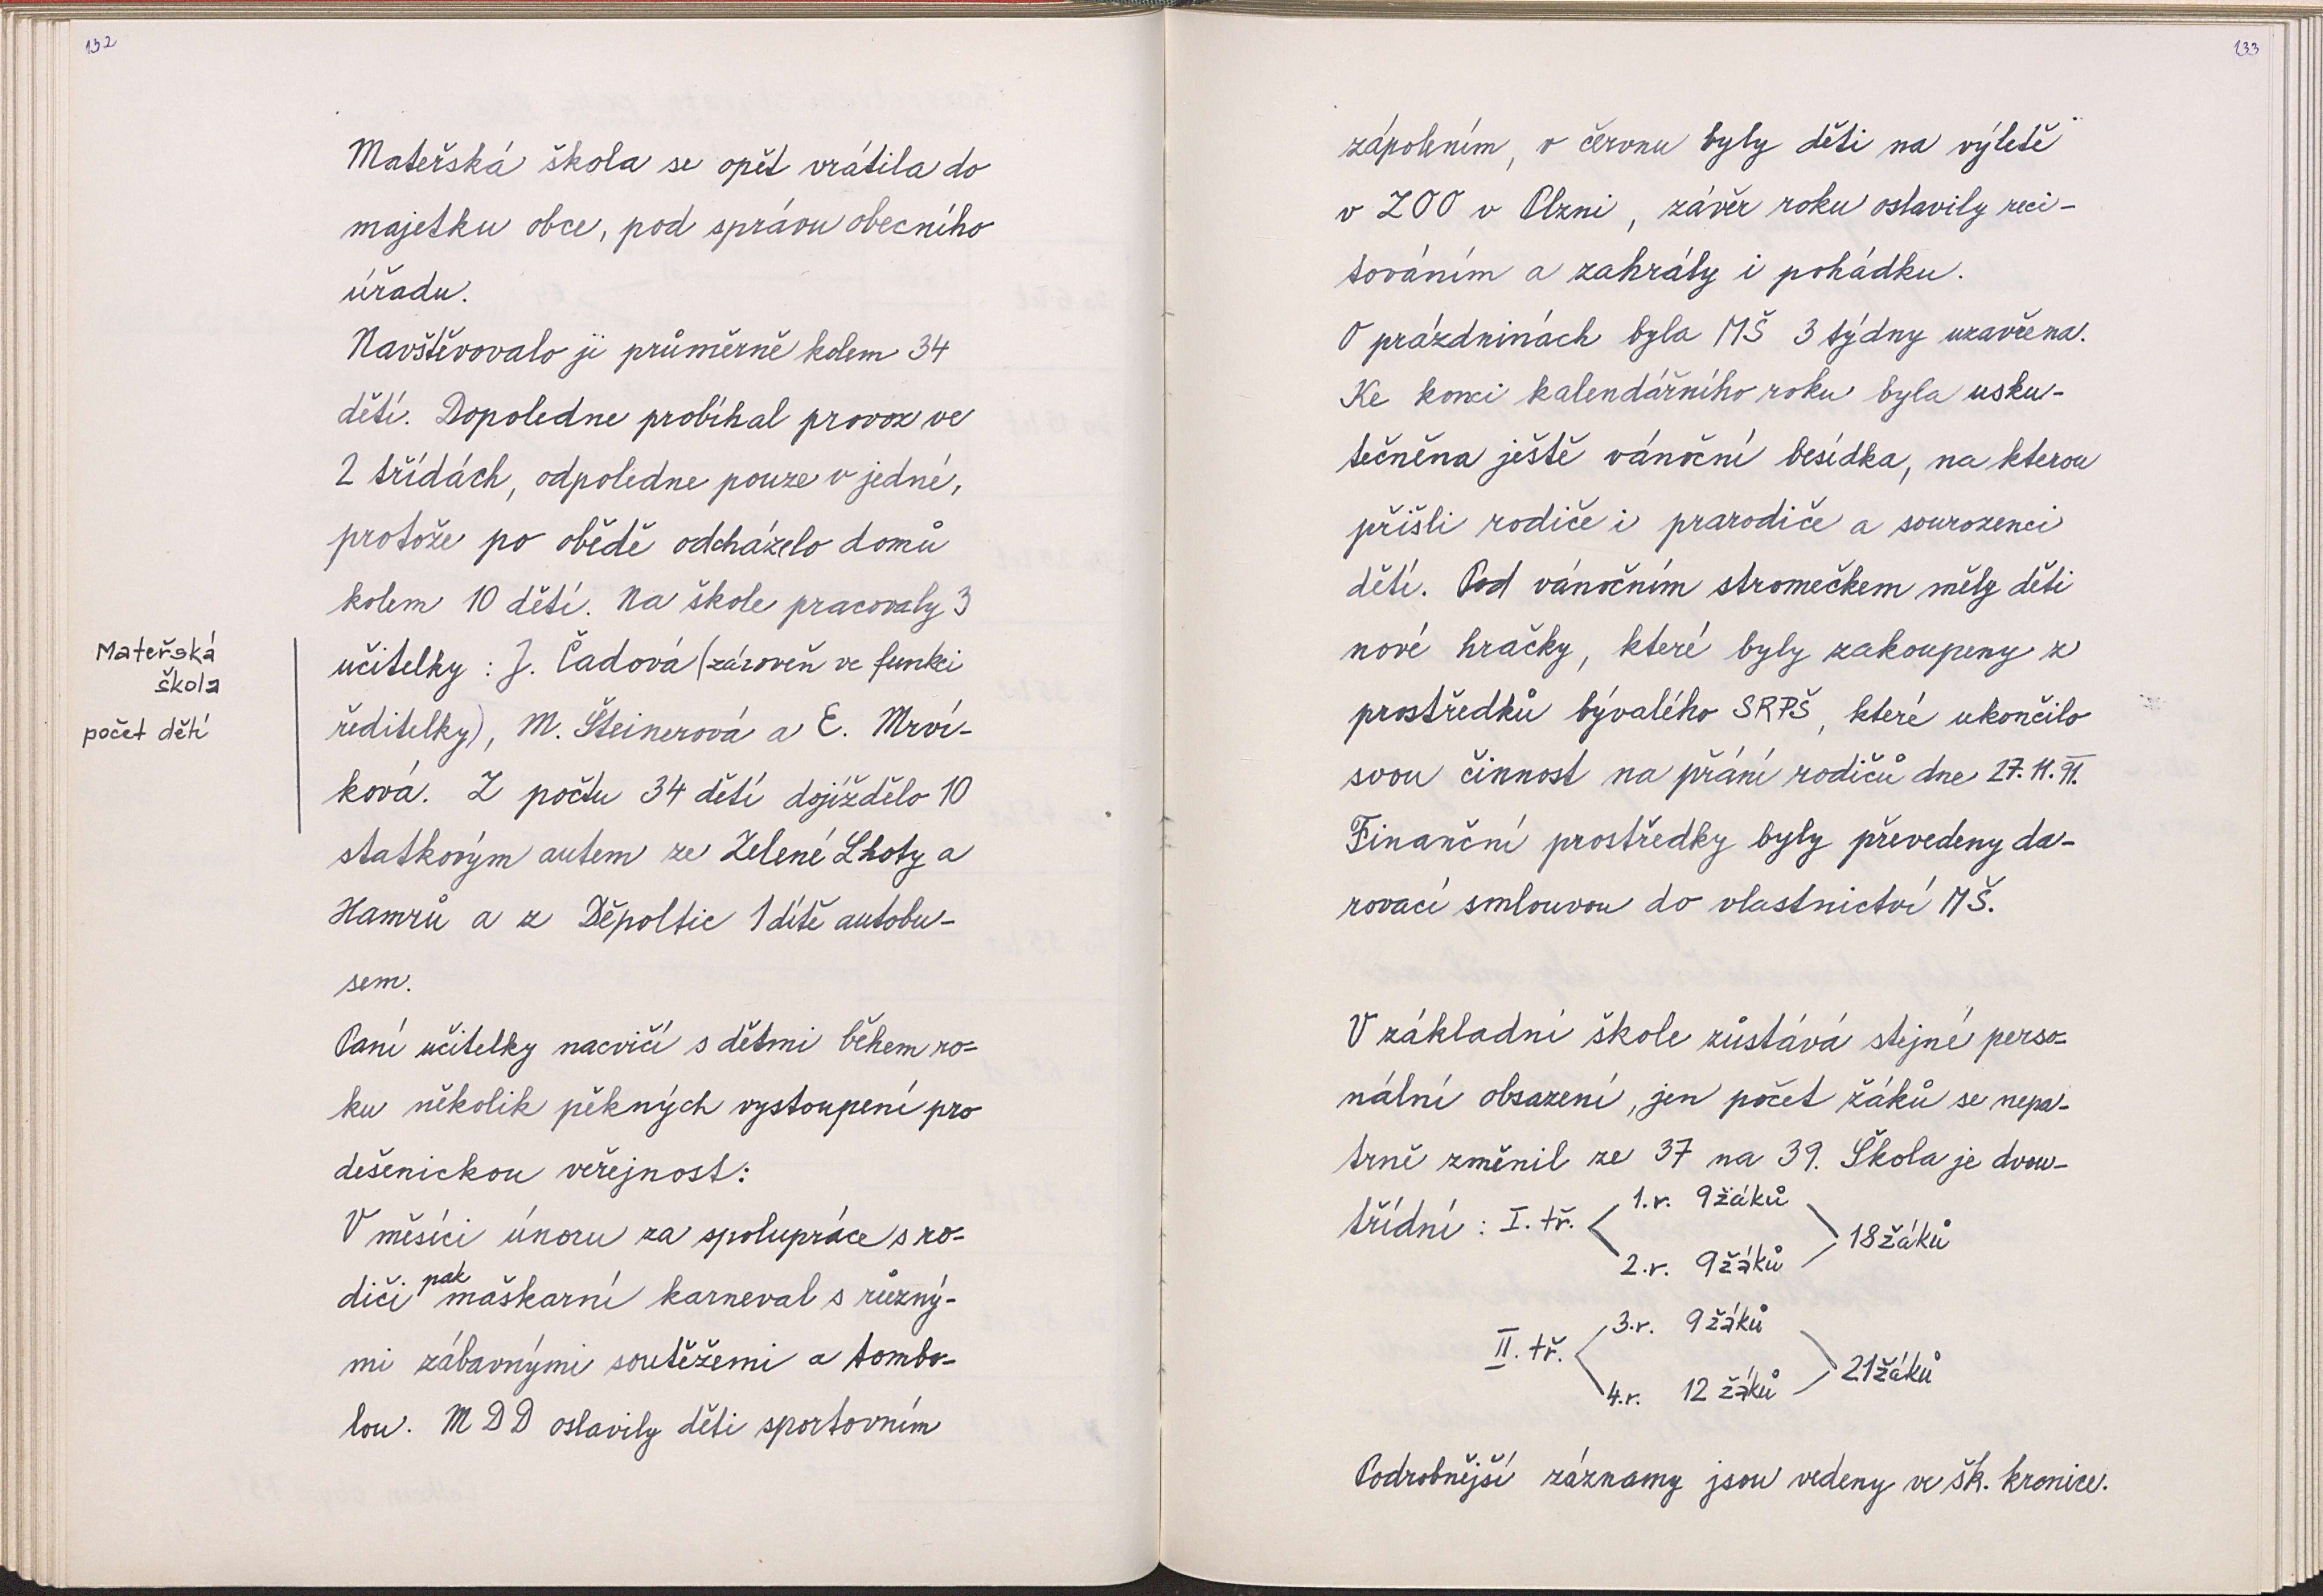 132
Mateřská škola se opět vrátila do
majetku obce, pod správu obecního
úřadu.
Navštěvovalo ji průměrně kolem 34
dětí. Dopoledne probíhal provoz ve
2 třídách, odpoledne pouze v jedné,
protože po obědě odcházelo domů
kolem 10 dětí. Na škole pracovaly 3
učitelky : J. Čadová (zároveň ve funkci
ředitelky), M. Šteinerová a E. Mrví-
ková. Z počtu 34 dětí dojíždělo 10
statkovým autem ze Zelené Lhoty a
Hamrů a z Děpoltic 1 dítě autobu-
sem.
Paní učitelky nacvičí s dětmi během ro-
ku několik pěkných vystoupení pro
dešenickou veřejnost:
V měsíci únoru za spolupráce s ro-
diči pak maškarní karneval s různý-
mi zábavnými soutěžemi a tombo-
lou. MDD oslavily děti sportovním
Mateřská
škola
počet dětí
133
zápolením, v červnu byly děti na výletě
v ZOO v Plzni, závěr roku oslavily reci-
továním a zahrály i pohádku.
O prázdninách byla MŠ 3 týdny uzavřena.
Ke konci kalendářního roku byla usku-
tečněna ještě vánoční besídka, na kterou
přišli rodiče i prarodiče a sourozenci
dětí. Pod vánočním stromečkem měly děti
nové hračky, které byly zakoupeny z
prostředků bývalého SRPŠ, které ukončilo
svou činnost na přání rodičů dne 27.11.91.
Finanční prostředky byly převedeny da-
rovací smlouvou do vlastnictví MŠ.
V základní škole zůstává stejné perso-
nální obsazení, jen počet žáků se nepa-
trně změnil ze 37 na 39. Škola je dvou-
třídní : I. tř. 1.r. 9 žáků
2.r. 9 žáků
18 žáků
II. tř. 3.r. 9 žáků
4.r. 12 žáků
21 žáků
Podrobnější záznamy jsou vedeny ve šk. kronice.